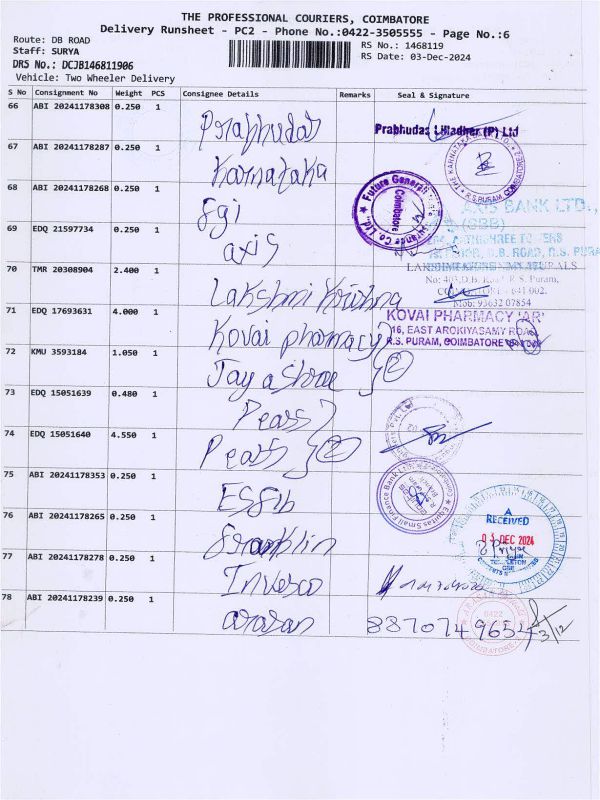 THE PROFESSIONAL COURIERS, COIMBATORE
Delivery Runsheet - PC2 - Phone No.:0422-3505555 - Page No.:6
Route: DB ROAD
RS No.: 1468119
Staff: SURYA
RS Date: 03-Dec-2024
DRS No.: DCJB146811906
Vehicle: Two Wheeler Delivery
S No Consignment No Weight PCS Consignee Details Remarks Seal & Signature
66 ABI 20241178308 0.250 1 Prabhudas
Prabhudas Liladher (P) Ltd
67 ABI 20241178287 0.250 1 Karnataka
R.S.PURAM, COIMBATORE
68 ABI 20241178268 0.250 1 Fgi
Future Generali
Coimbatore
AXIS BANK LTD.,
69 EDQ 21597734 0.250 1 axis
D.B. ROAD, R.S. PURA
70 TMR 20308904 2.400 1 Lakshmi Krishna
LAKSHMI KRISHNA NATURALS
No: 403, D.B. Road, R.S. Puram,
COIMBATORE - 641 002.
Mob: 93632 07854
71 EDQ 17693631 4.000 1 Kovai pharmacy
KOVAI PHARMACY
16, EAST AROKIYASAMY ROAD
R.S. PURAM, COIMBATORE
72 KMU 3593184 1.050 1 Jayashree
2
73 EDQ 15051639 0.480 1 Pears
74 EDQ 15051640 4.550 1 Pears
2
75 ABI 20241178353 0.250 1 ESFib
Equitas Small Finance Bank Ltd
76 ABI 20241178265 0.250 1 Franklin
RECEIVED
DEC 2024
77 ABI 20241178278 0.250 1 Invesco
78 ABI 20241178239 0.250 1 araran
0422
COIMBATORE
8870749654
3/12